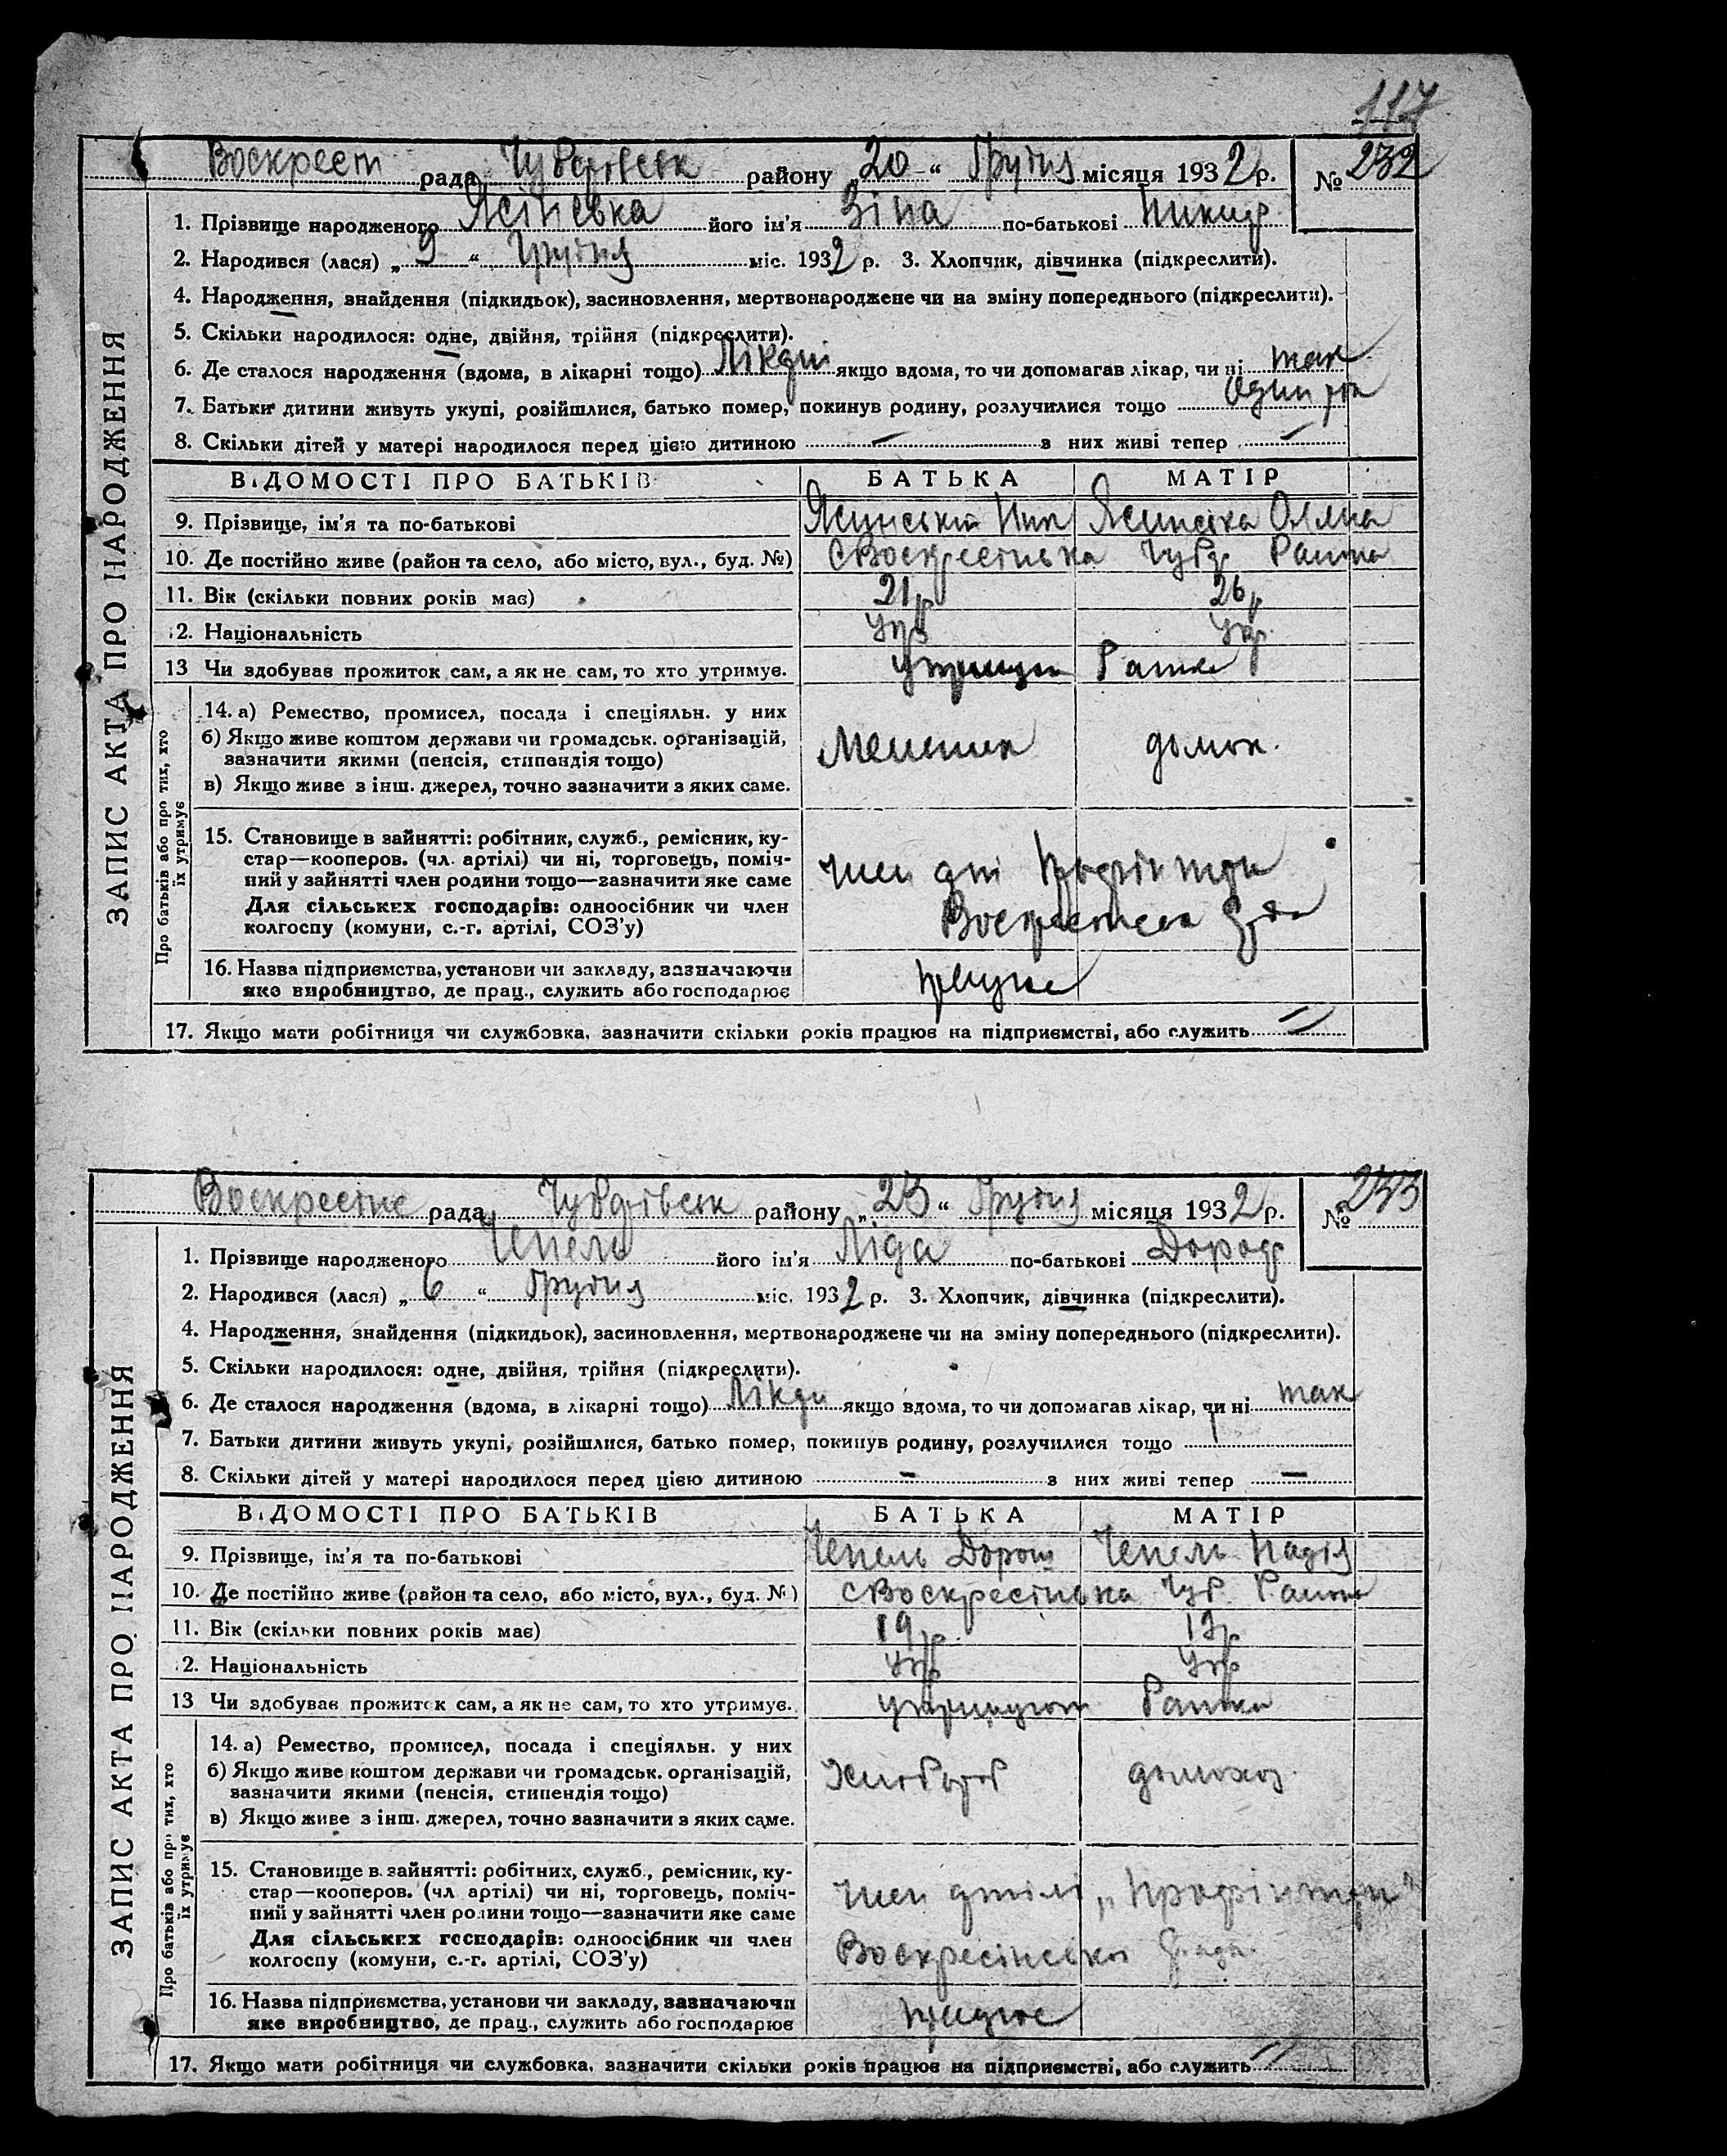 117
Воскрест рада Чубарівськ району „20“ Грудня місяця 1932 р. № 232
1. Прізвище народженого його ім'я Зіна по-батькові Никиф
2. Народився (лася) „9“ Грудня міс. 1932 р. 3. Хлопчик, дівчинка (підкреслити).
4. Народження, знайдення (підкидьок), засиновлення, мертвонароджене чи на зміну попереднього (підкреслити).
5. Скільки народилося: одне, двійня, трійня (підкреслити).
6. Де сталося народження (вдома, в лікарні тощо) якщо вдома, то чи допомагав лікар, чи ні так
7. Батьки дитини живуть укупі, розійшлися, батько помер, покинув родину, розлучилися тощо
8. Скільки дітей у матері народилося перед цією дитиною — з них живі тепер —
ВІДОМОСТІ ПРО БАТЬКІВ БАТЬКА МАТІР
9. Прізвище, ім'я та по-батькові Ясинський Ясинська
10. Де постійно живе (район та село, або місто, вул., буд. №) с Воскресінька Чуб.
11. Вік (скільки повних років має) 21 р 26 р
12. Національність Укр Укр.
13 Чи здобував прожиток сам, а як не сам, то хто утримує.
14. а) Ремество, промисел, посада і спеціяльн. у них
б) Якщо живе коштом держави чи громадськ. організацій,
зазначити якими (пенсія, стипендія тощо)
в) Якщо живе з інш. джерел, точно зазначити з яких саме.
15. Становище в зайнятті: робітник, служб., ремісник, ку-
стар—кооперов. (чл. артілі) чи ні, торговець, поміч-
ний у зайнятті член родини тощо—зазначити яке саме
Для сільських господарів: одноосібник чи член
колгоспу (комуни, с.-г. артілі, СОЗ'у)
16. Назва підприємства, установи чи закладу, зазначаючи
яке виробництво, де прац., служить або господарює працює
17. Якщо мати робітниця чи службовка, зазначити скільки років працює на підприємстві, або служить
ЗАПИС АКТА ПРО НАРОДЖЕННЯ
Про батьків або про тих, хто їх утримує
Воскресінс рада Чубарівськ району „23“ Грудня місяця 1932 р. № 233
1. Прізвище народженого Чепель його ім'я Ліда по-батькові Дороф
2. Народився (лася) „6“ Грудня міс. 1932 р. 3. Хлопчик, дівчинка (підкреслити).
4. Народження, знайдення (підкидьок), засиновлення, мертвонароджене чи на зміну попереднього (підкреслити).
5. Скільки народилося: одне, двійня, трійня (підкреслити).
6. Де сталося народження (вдома, в лікарні тощо) якщо вдома, то чи допомагав лікар, чи ні так
7. Батьки дитини живуть укупі, розійшлися, батько помер, покинув родину, розлучилися тощо
8. Скільки дітей у матері народилося перед цією дитиною — з них живі тепер —
ВІДОМОСТІ ПРО БАТЬКІВ БАТЬКА МАТІР
9. Прізвище, ім'я та по-батькові Чепель Дорош Чепель Надія
10. Де постійно живе (район та село, або місто, вул., буд. №) с Воскресінька Чуб.
11. Вік (скільки повних років має) 19 р
12. Національність Укр Укр
13 Чи здобував прожиток сам, а як не сам, то хто утримує.
14. а) Ремество, промисел, посада і спеціяльн. у них
б) Якщо живе коштом держави чи громадськ. організацій,
зазначити якими (пенсія, стипендія тощо)
в) Якщо живе з інш. джерел, точно зазначити з яких саме.
Хлібороб домохоз.
15. Становище в зайнятті: робітник, служб., ремісник, ку-
стар—кооперов. (чл. артілі) чи ні, торговець, поміч-
ний у зайнятті член родини тощо—зазначити яке саме
Для сільських господарів: одноосібник чи член
колгоспу (комуни, с.-г. артілі, СОЗ'у)
член артілі „Профінтерн“
Воскресінська
16. Назва підприємства, установи чи закладу, зазначаючи
яке виробництво, де прац., служить або господарює працює
17. Якщо мати робітниця чи службовка, зазначити скільки років працює на підприємстві, або служить
ЗАПИС АКТА ПРО НАРОДЖЕННЯ
Про батьків або про тих, хто їх утримує